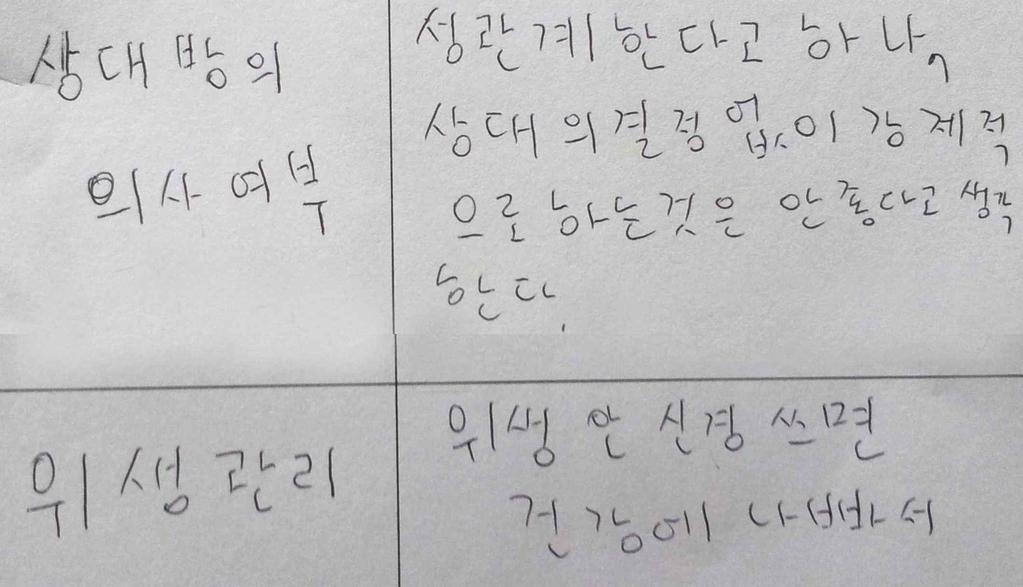 상대방의
의사여부
성관계한다고 하나,
상대의결정 없이 강제적
으로 하는것은 안좋다고 생각
한다.
위생관리
위생 안 신경 쓰면
건강에 나빠서